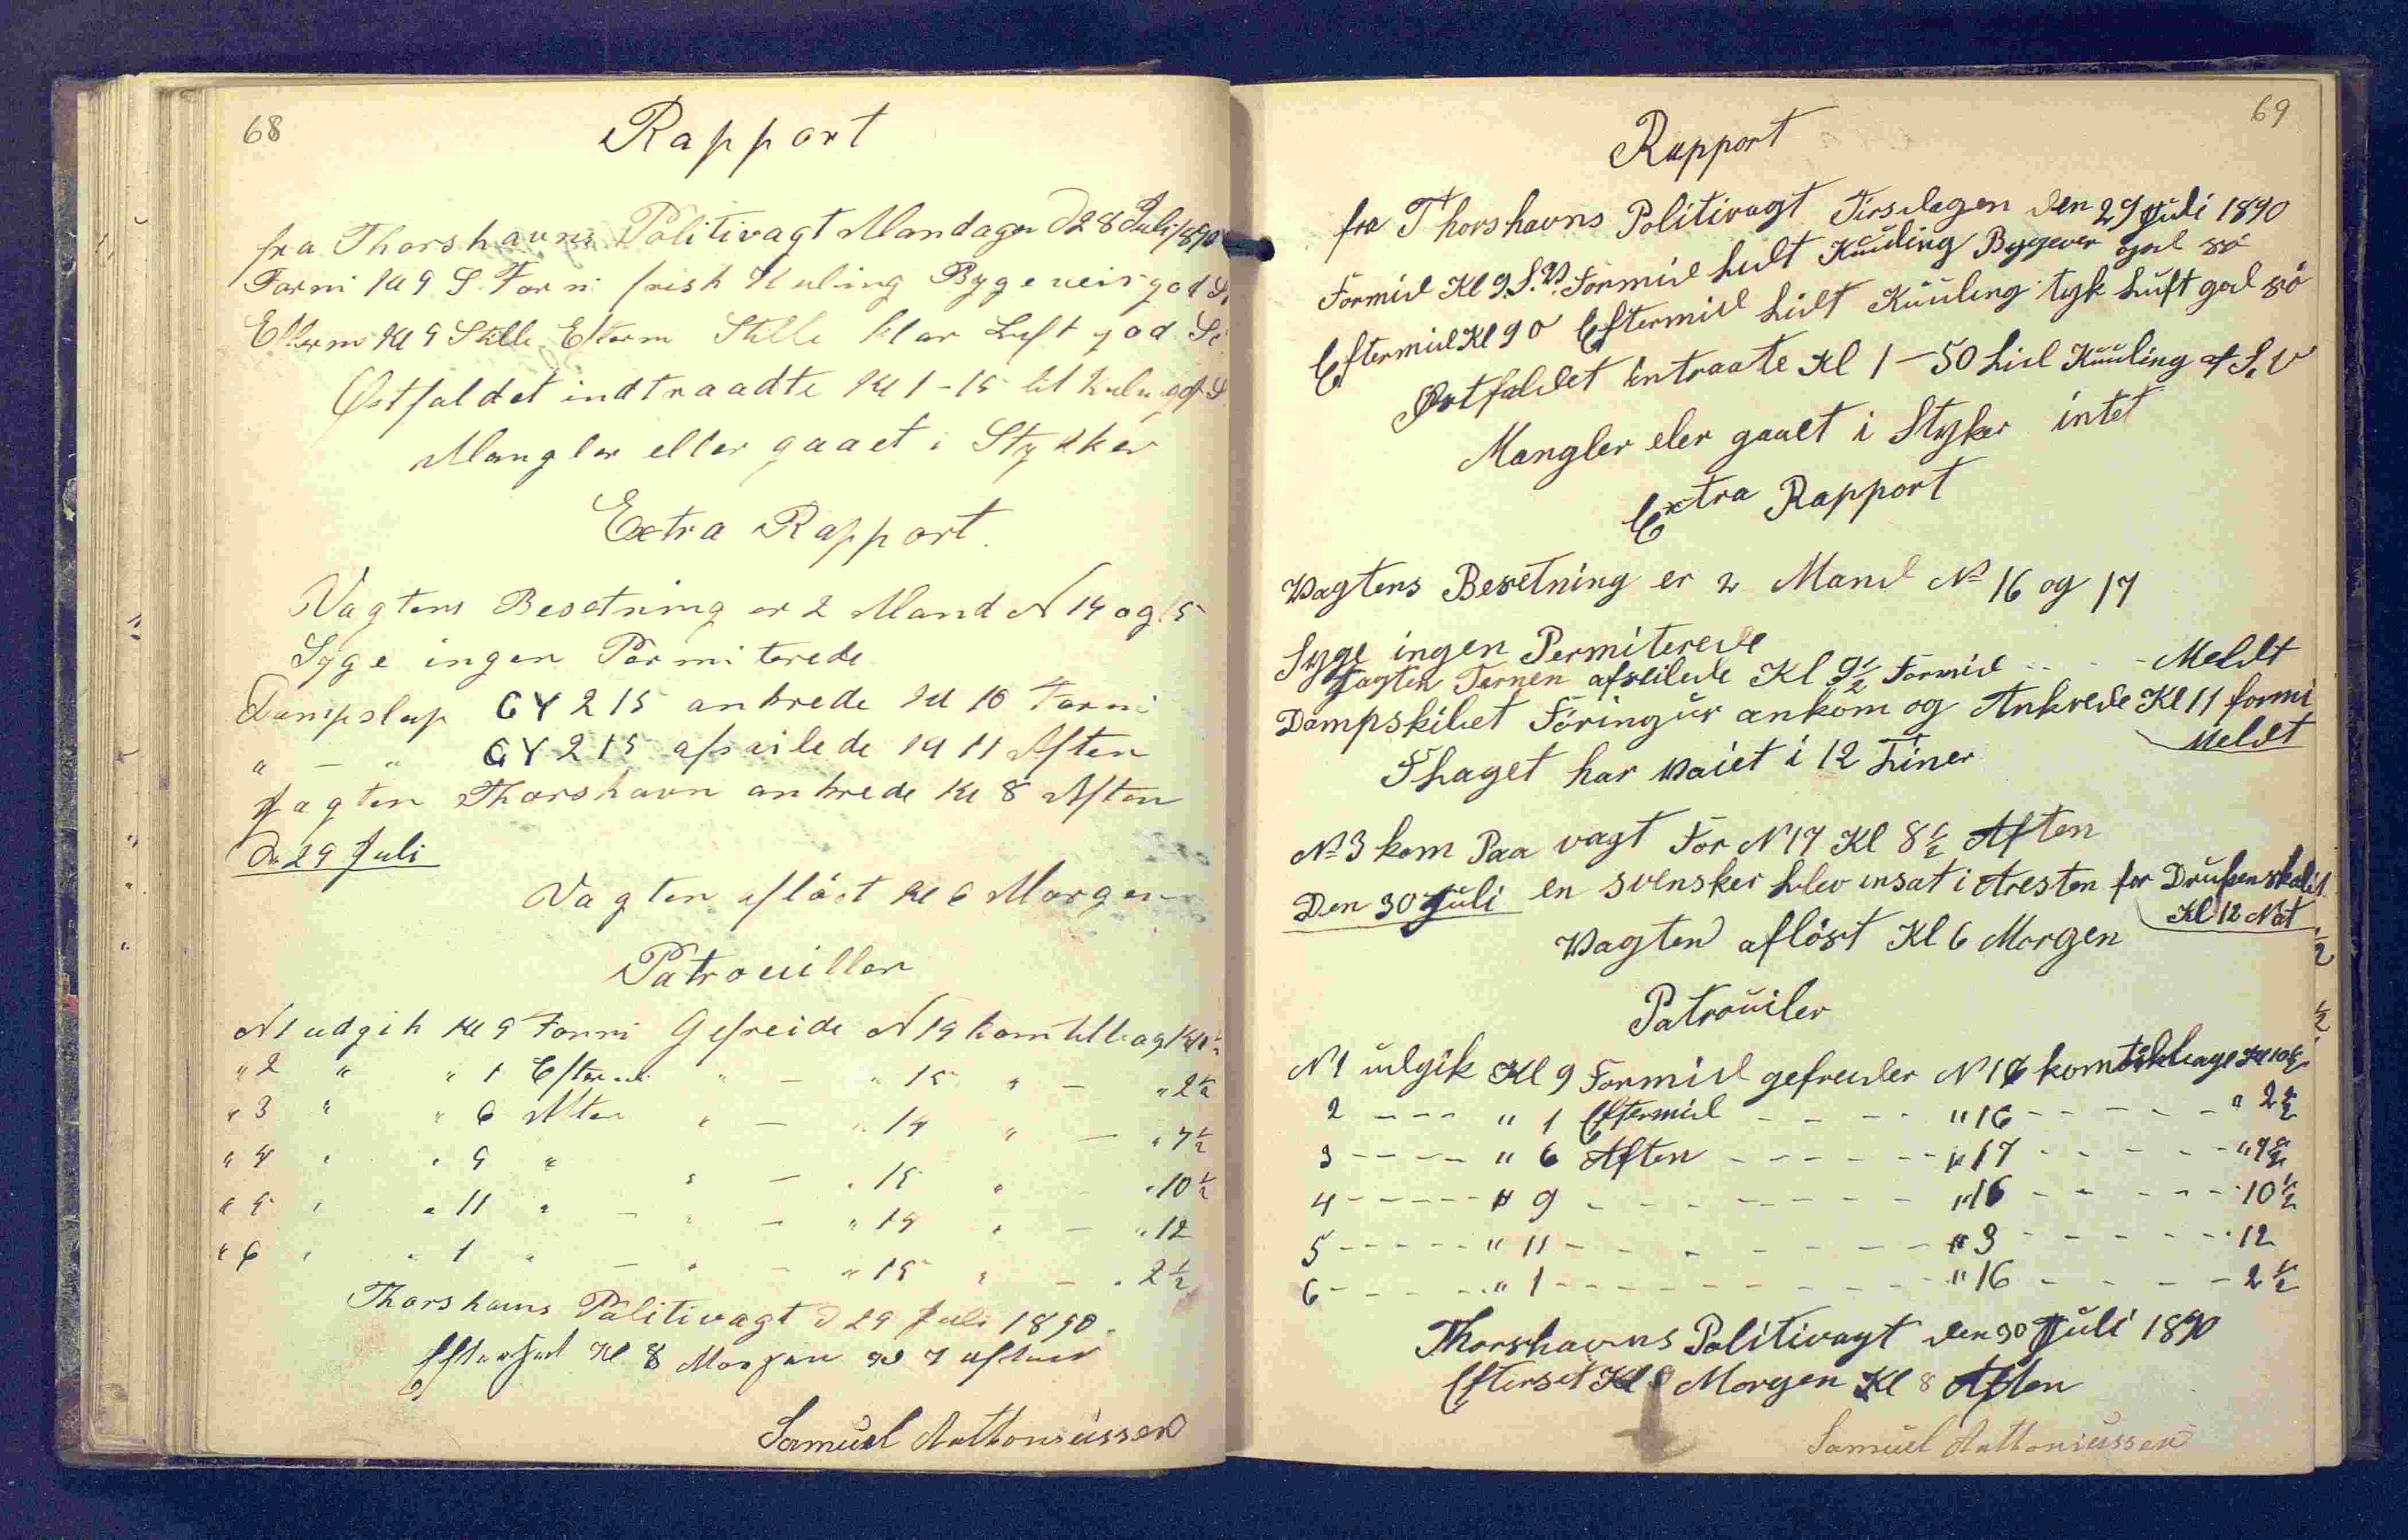 68
Rapport
fra Thorshavns Politivagt Mandagen D 28 Juli 1890
Formi Kl 9 S. Formi frisk Kuling Bygeveir god
Efterm Kl 9 Stille Efterm Stille klar Luft god
Østfaldet indtraadte Kl 1-15 lit Kuling af S
Mangler eller gaaet i Stykker
Extra Rapport.
Vagtens Besetning er 2 Mand N 14 og 15
Syge ingen Permiterede
Dampslup GY 215 ankrede Kl 10 Formi
" — " GY 215 afseilede Kl 11 Aften
Jagten Thorshavn ankrede Kl 8 Aften
D. 29 Juli
Vagten afløst Kl 6 Morgen
Patrouiller
N1 udgik Kl 9 Formi Gefreide N 14 kom tilbag Kl
" 2 " " 1 Efterm " — " 15 " — " 2½
" 3 " " 6 Aften " — " 14 " — " 7½
" 4 " " 9 " " — " 15 " " 10½
" 5 " " 11 " — " — " 14 " — " 12
" 6 " " 1 " — " — " 15 " — " 2½
Thorshavns Politivagt D 29 Juli 1890.
Efterset Kl 8 Morgen 7 aften
Samuel Anthoniussen
69
Rapport
fra Thorshavns Politivagt Tirsdagen den 29 Juli 1890
Formid Kl 9 S.V. Formid Lidt Kuuling Bygever god sö
Eftermid Kl 9 0 Eftermid Lidt Kuuling tyk Luft god sö
Østfaldet intraate Kl 1-50 Lid Kuuling af S.V
Mangler eler gaaet i Styker intet
Extra Rapport
Vagtens Besetning er 2 Mand No 16 og 17
Syge ingen Permiterede
Jagten Ternen afseilede Kl 9½ Formid . . . . Meldt
Dampskibet Föringur ankom og Ankrede Kl 11 formi
Meldt
Flaget har vaiet i 12 Timer
No 3 kom Paa vagt For N 17 Kl 8½ Aften
Den 30 Juli en svensker blev insat i Aresten for Drukenskabet
Kl 12 Nat
Vagten aflöst Kl 6 Morgen
Patrouiler
N1 udgik Kl 9 Formid gefreider N 17 kom tilbage Kl 10½
2 - - - " 1 Eftermid - - - - " 16 - - - - - " 2½
3 - - - - " 6 Aften - - - - - - " 17 - - - - - " 7½
4 - - - - - " 9 - - - - - - - - " 16 - - - - - 10½
5 - - - - - " 11 - - - - - - - - " 3 - - - - - - 12
6 - - - - - " 1 - - - - - - - - " 16 - - - - - 2½
Thorshavns Politivagt den 30 Juli 1890
Efterset Kl 8 Morgen Kl 8 Aften
Samuel Anthoniussen